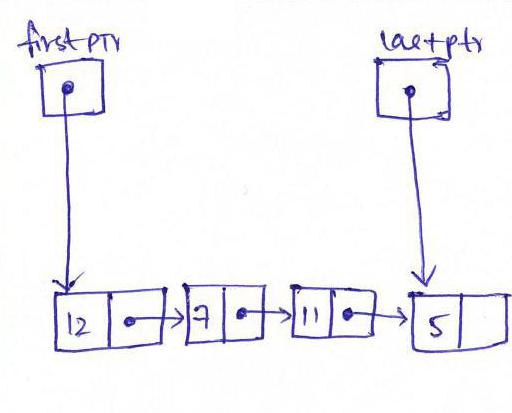 firstPtr lastptr
12 7 11 5